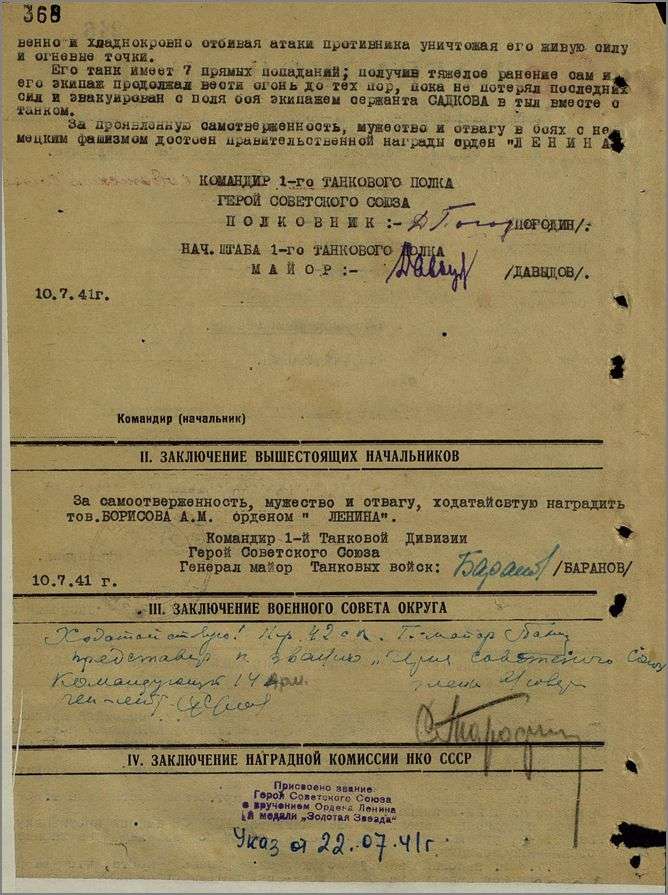 368
венно и хладнокровно отбивая атаки противника уничтожая его живую силу
и огневые точки.
Его танк имеет 7 прямых попаданий; получив тяжелое ранение сам и
его экипаж продолжал вести огонь до тех пор, пока не потерял последних
сил и эвакуирован с поля боя экипажем сержанта САДКОВА в тыл вместе с
танком.
За проявленную самотверженность, мужество и отвагу в боях с не
мецким фашизмом достоен правительственной награды орден "Л Е Н И Н А
КОМАНДИР 1-го ТАНКОВОГО ПОЛКА
ГЕРОЙ СОВЕТСКОГО СОЮЗА
П О Л К О В Н И К :- ПОГОДИН/.
НАЧ.ШТАБА 1-го ТАНКОВОГО ПОЛКА
М А Й О Р :- /ДАВЫДОВ/.
10.7.41г.
Командир (начальник)
II. ЗАКЛЮЧЕНИЕ ВЫШЕСТОЯЩИХ НАЧАЛЬНИКОВ
За самоотверженность, мужество и отвагу, ходатайсвтую наградить
тов.БОРИСОВА А.М. орденом " ЛЕНИНА".
Командир 1-й Танковой Дивизии
Герой Советского Союза
Генерал майор Танковых войск: Баранов /БАРАНОВ/
10.7.41 г.
III. ЗАКЛЮЧЕНИЕ ВОЕННОГО СОВЕТА ОКРУГА
Ходатайствую! 42 ск Г-майор
к званию „Героя Советского Союза
Командующий 14 Арм.
ген-лейт.
IV. ЗАКЛЮЧЕНИЕ НАГРАДНОЙ КОМИССИИ НКО СССР
Присвоено звание
Герой Советского Союза
с вручением Ордена Ленина
и медали „Золотая Звезда"
Указ от 22.07.41г